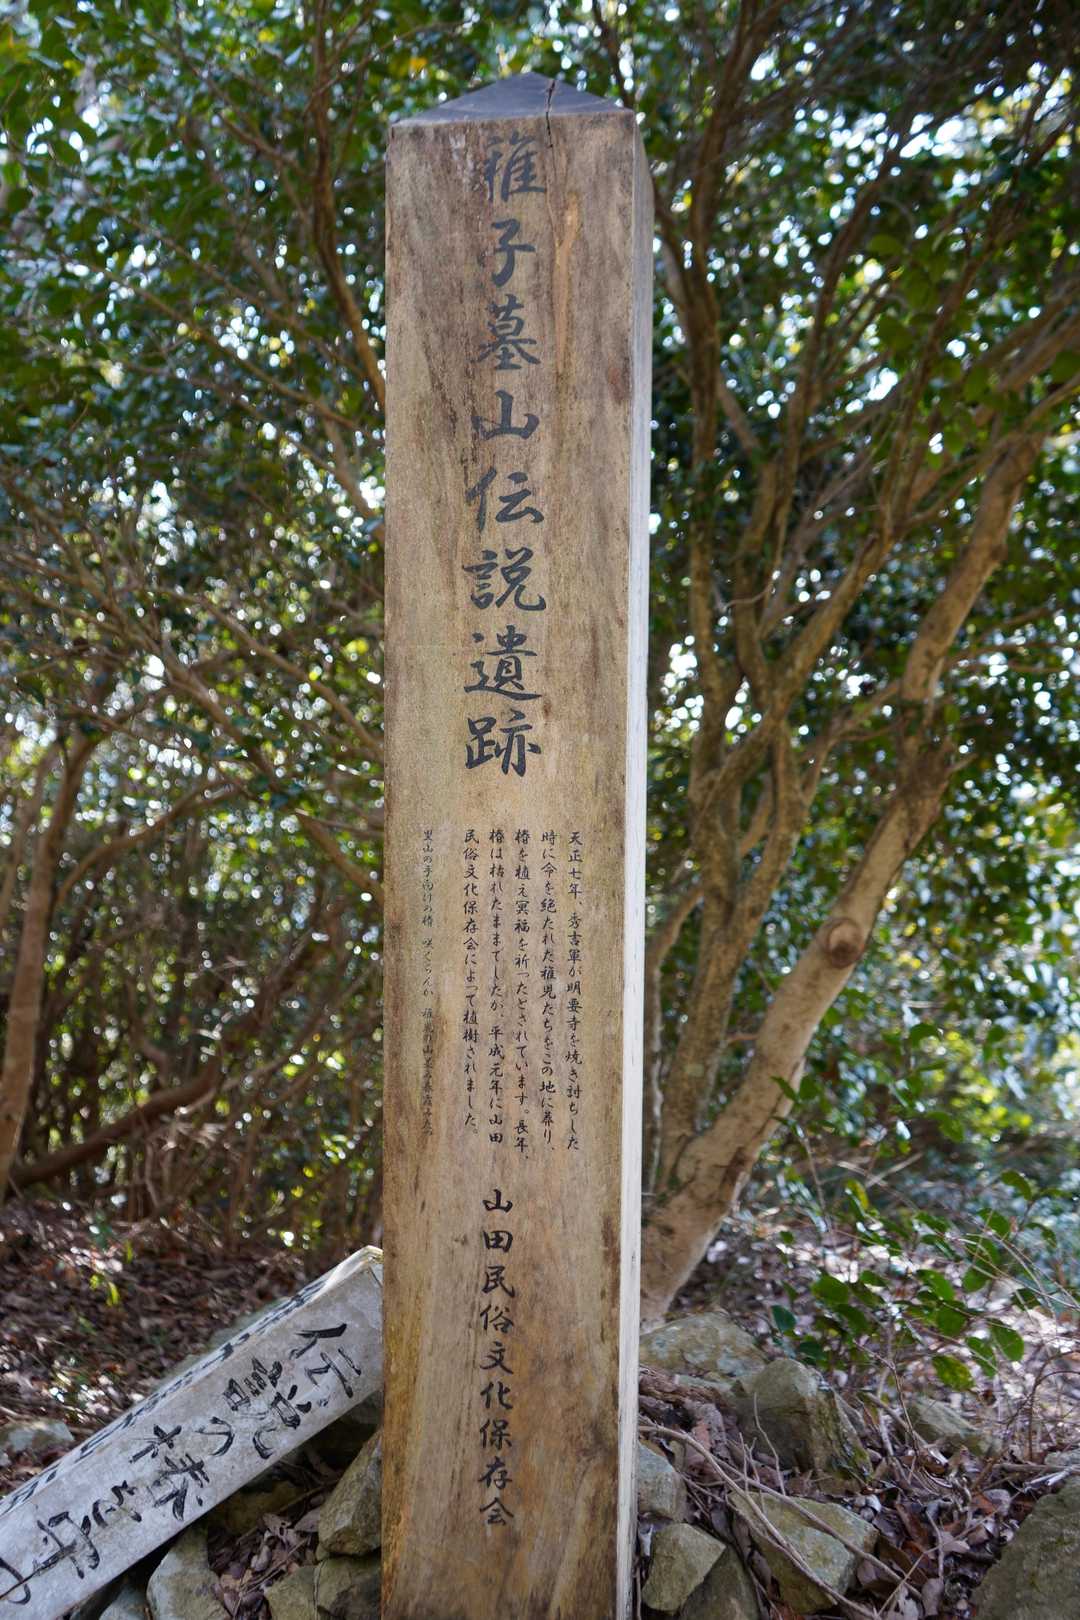 稚子墓山伝説遺跡
天正七年、秀吉軍が明要寺を焼き討ちした
時に命を絶たれた稚児たちをこの地に葬り、
椿を植え冥福を祈ったとされています。長年、
椿は枯れたままでしたが、平成元年に山田
民俗文化保存会によって植樹されました。
里山の手向けの椿 咲くらんか
山田民俗文化保存会
伝説の椿を守